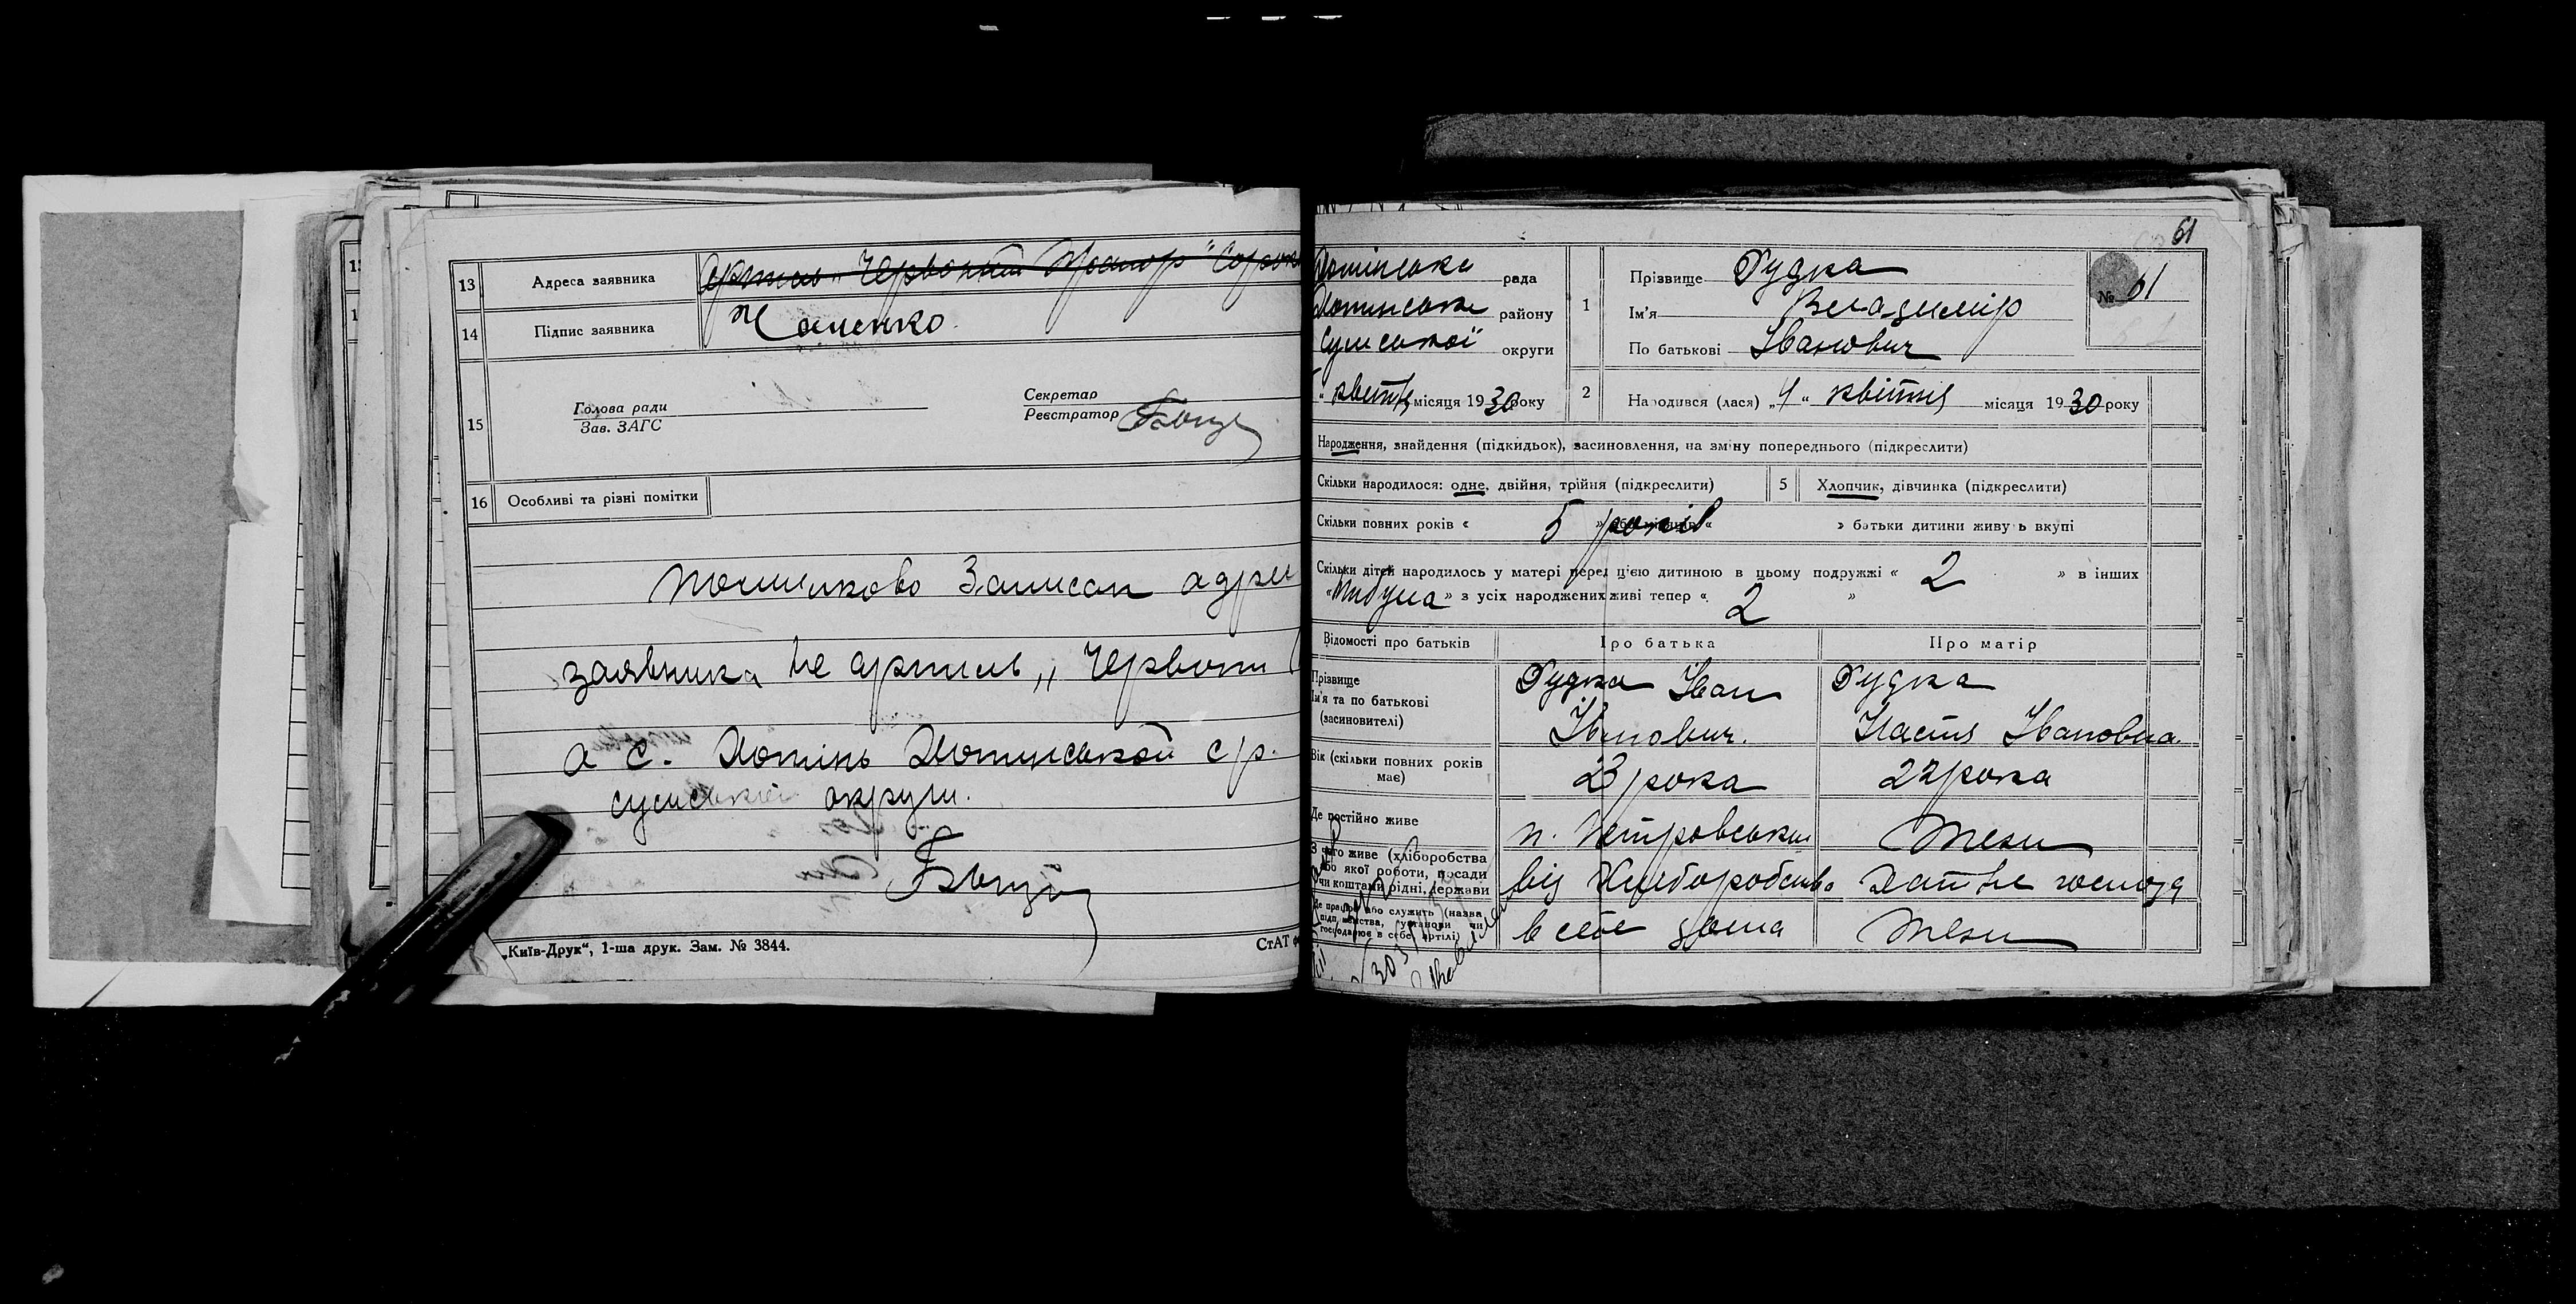 13 Адреса заявника Артиль „Червоний Прапор"
14 Підпис заявника
15 Голова ради
Зав. ЗАГС
Секретар
Реєстратор
16 Особливі та різні помітки
Помилково Записан адре
заявника не артиль „Червони
а с. Хотінь Хотинськой с/р.
сумської округи.
„Київ-Друк“, 1-ша друк. Зам. № 3844.
СтАТ
61
Хотінська рада
Хотинське району
Сумської округи
" квітня місяця 1930 року
1 Прізвище Гудка
Ім'я Владимір
По батькові Іванович
№ 61
2 Народився (лася) „4“ квітня місяця 1930 року
Народження, знайдення (підкидьок), засиновлення, на зміну попереднього (підкреслити)
Скільки народилося: одне, двійня, трійня (підкреслити)
5 Хлопчик, дівчинка (підкреслити)
Скільки повних років « 5 » років « » батьки дитини живуть вкупі
Скільки дітей народилось у матері перед цією дитиною в цьому подружжі « 2 » в інших
» з усіх народжених живі тепер « 2 »
Відомості про батьків Про батька Про матір
Прізвище
Ім'я та по батькові
(засновителі)
Гудка Іван
Іванович.
Гудка
Настя Івановна.
Вік (скільки повних років має) 23 рока 22 рока
Де постійно живе п. Петровський Тези
З чого живе (хліборобства
або якої роботи, посади
чи кошатми рідні, держави
від Хліборобства Хатнє господ
Де працює або служить (назва
підприємства, установи чи
господарює в себе, артілі)
в себе дома Тези